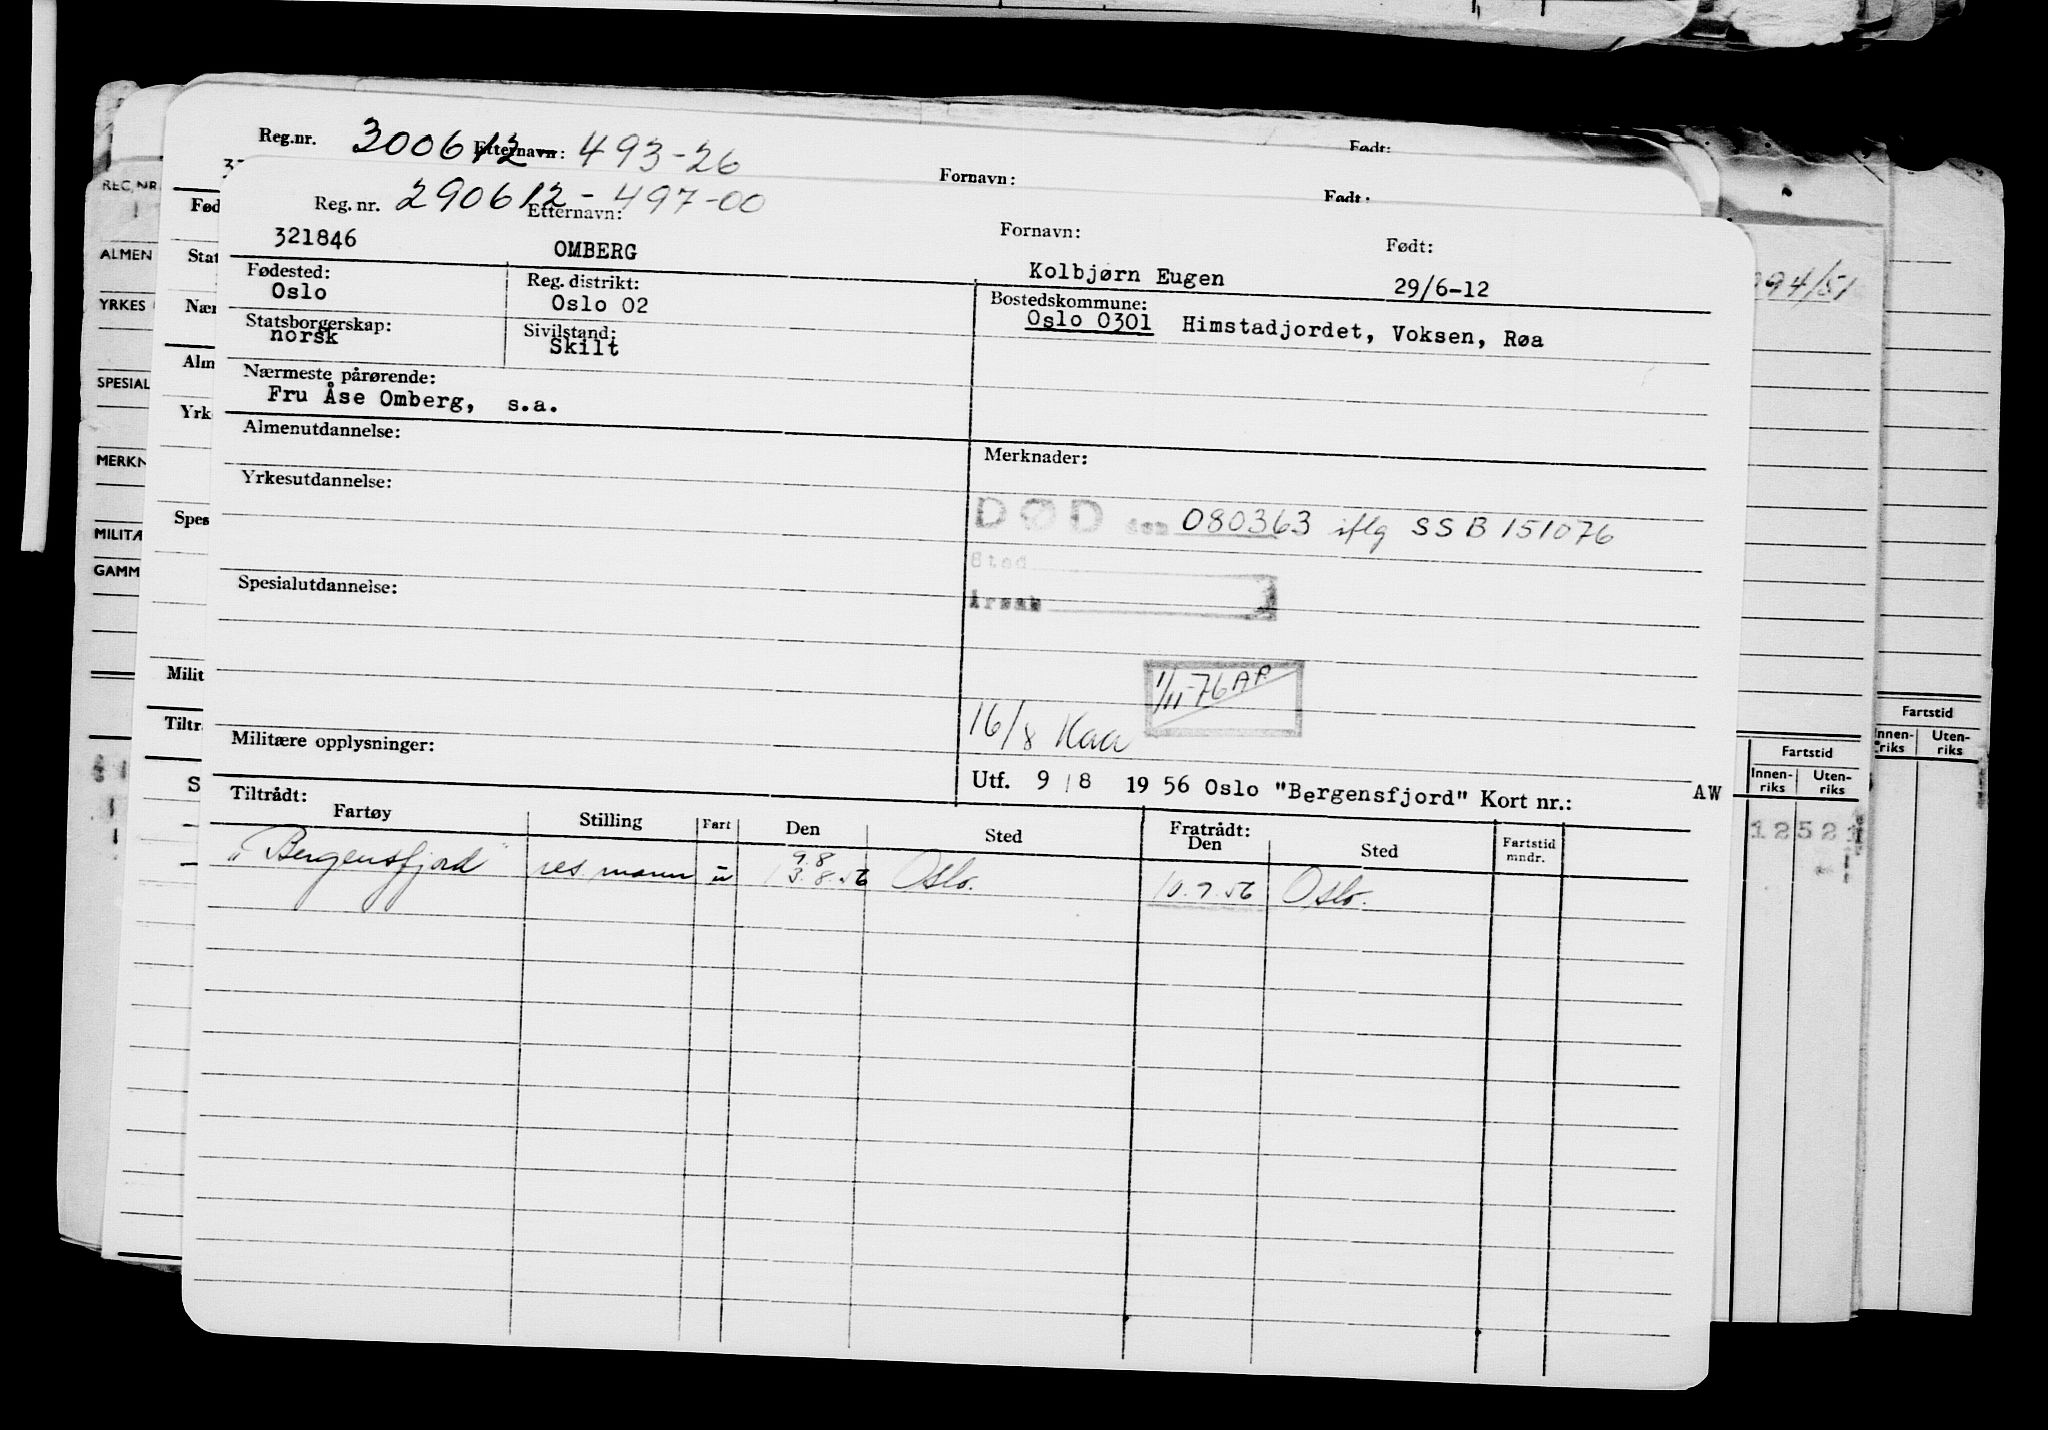 Reg.nr. 300612 Etternavn: 493-26 Fornavn: Født:
Reg. nr. 290612-497-00 Etternavn: Fornavn: Født:
321846 OMBERG Kolbjørn Eugen 29/6-12
Fødested: Reg. distrikt: Bostedskommune:
Oslo Oslo 02 Oslo 0301 Himstadjordet, Voksen, Røa
Statsborgerskap: Sivilstand:
norsk Skilt
Nærmeste pårørende:
Fru Åse Omberg, s.a.
Almenutdannelse: Merknader:
Yrkesutdannelse:
DØD den 080363 iflg SSB 151076
Sted
Årsak
Spesialutdannelse:
1/11-76 AP
16/8 Kaa
Militære opplysninger:
Utf. 9/8 1956 Oslo "Bergensfjord" Kort nr.: AW
Tiltrådt: Fratrådt:
Fartøy Stilling Fart Den Sted Den Sted Fartstid mndr.
9.8
"Bergensfjord" res mann u 13.8.56 Oslo. 10.9.56 Oslo.
REG. NR.
Fød
ALMEN
Stat
YRKES
Nær
Alm
SPESIAL
Yrk
MERKN
Spes
MILITÆ
GAMM
Milit
Tiltr
S
94/51
Fartstid
Innen-riks Uten-riks
Fartstid
Innen-riks Uten-riks
12521